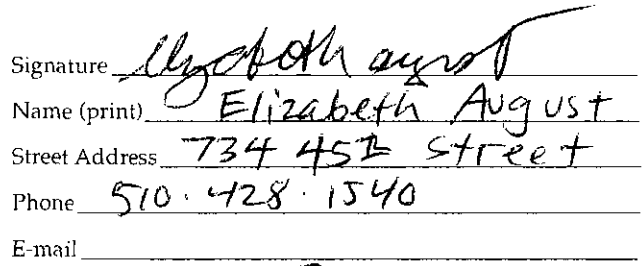 Signature Elizabeth August
Name (print) Elizabeth August
Street Address 734 45th Street
Phone 510.428.1540
E-mail